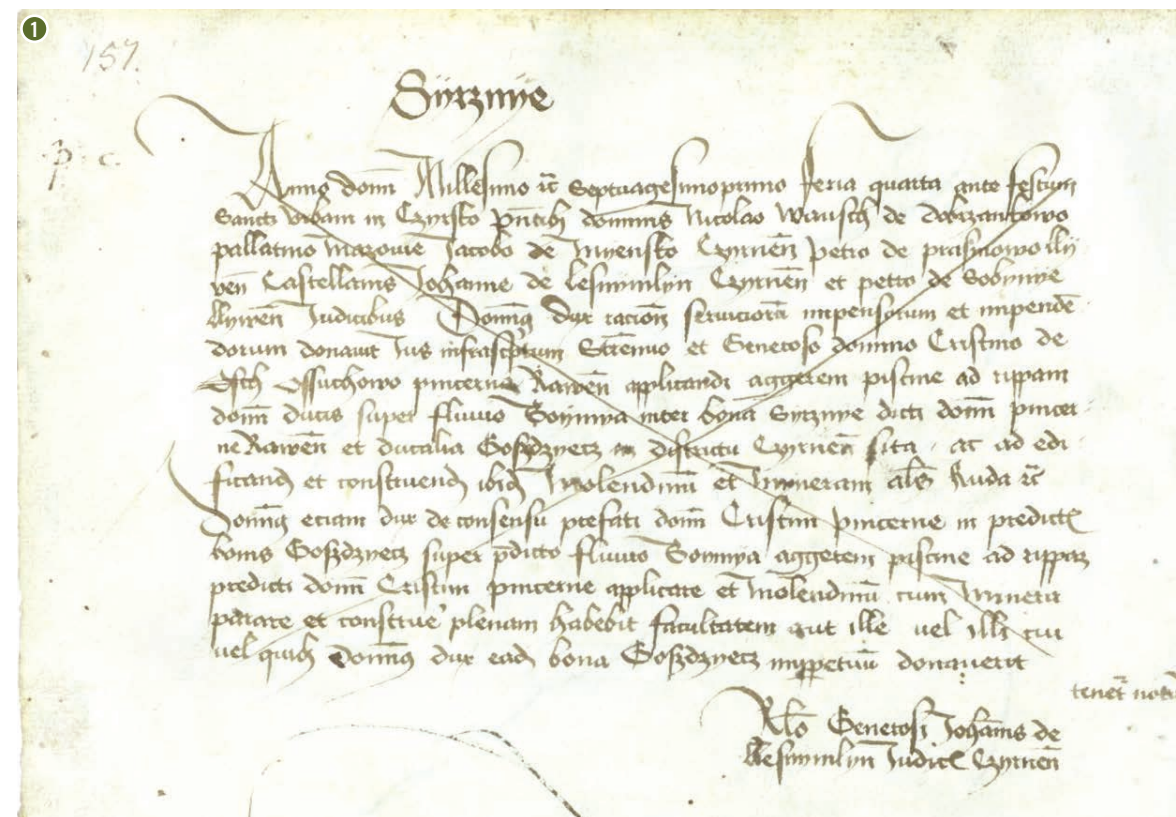 1
157.
Syrznye
p. c.
Anno domī Millesimo rc̄ Septuagesimoprimo feria quarta ante festum
Sancti Vrbani in Czyrsko pn̄tibɜ dominis Nicolao Wansch de dobrzankowo
pallatino Mazouie Jacobo de Mnyensko Czyrnēn petro de prasmowo lly
vēn Castellanis Johanne de lesmimlyn Czyrnēn et petro de Sobynye
llywēn Judicibus Domin9 dux racioē seruiciorū impensorum et impende
dorum donauit Jus infrasc̄ptum Strēnuo et Generoso domino Cristino de
Ossuchowo pincerne Rawēn applicandi aggerem piscine ad rippam
domī ducis super fluuio Soynya inter bona Syrznye dicti domī pincer
ne Rawēn et ducalia Goszdzyecz in districtu Czyrnēn sita ac ad edi
ficandū et construendū ibidē Molendinū et Mineram als̄ Ruda rc̄
Domin9 eciam dux de consensu prefati domī Cristini pincerne in predictis
bonis Goszdzyecz super p̄dicto fluuio Soynya aggerem piscine ad rippaɜ
predicti domī Cristini pincerne applicare et Molendinū cum Minera
parare et construē plenam habebit facultatem aut ille uel illi cui
uel quibɜ Domin9 dux eadē bona Goszdzyecz inpperetuū donauerit
tenet̄ not
Rl̄o Generosi Johānis de
llesmimlyn Judicis Czyrnēn